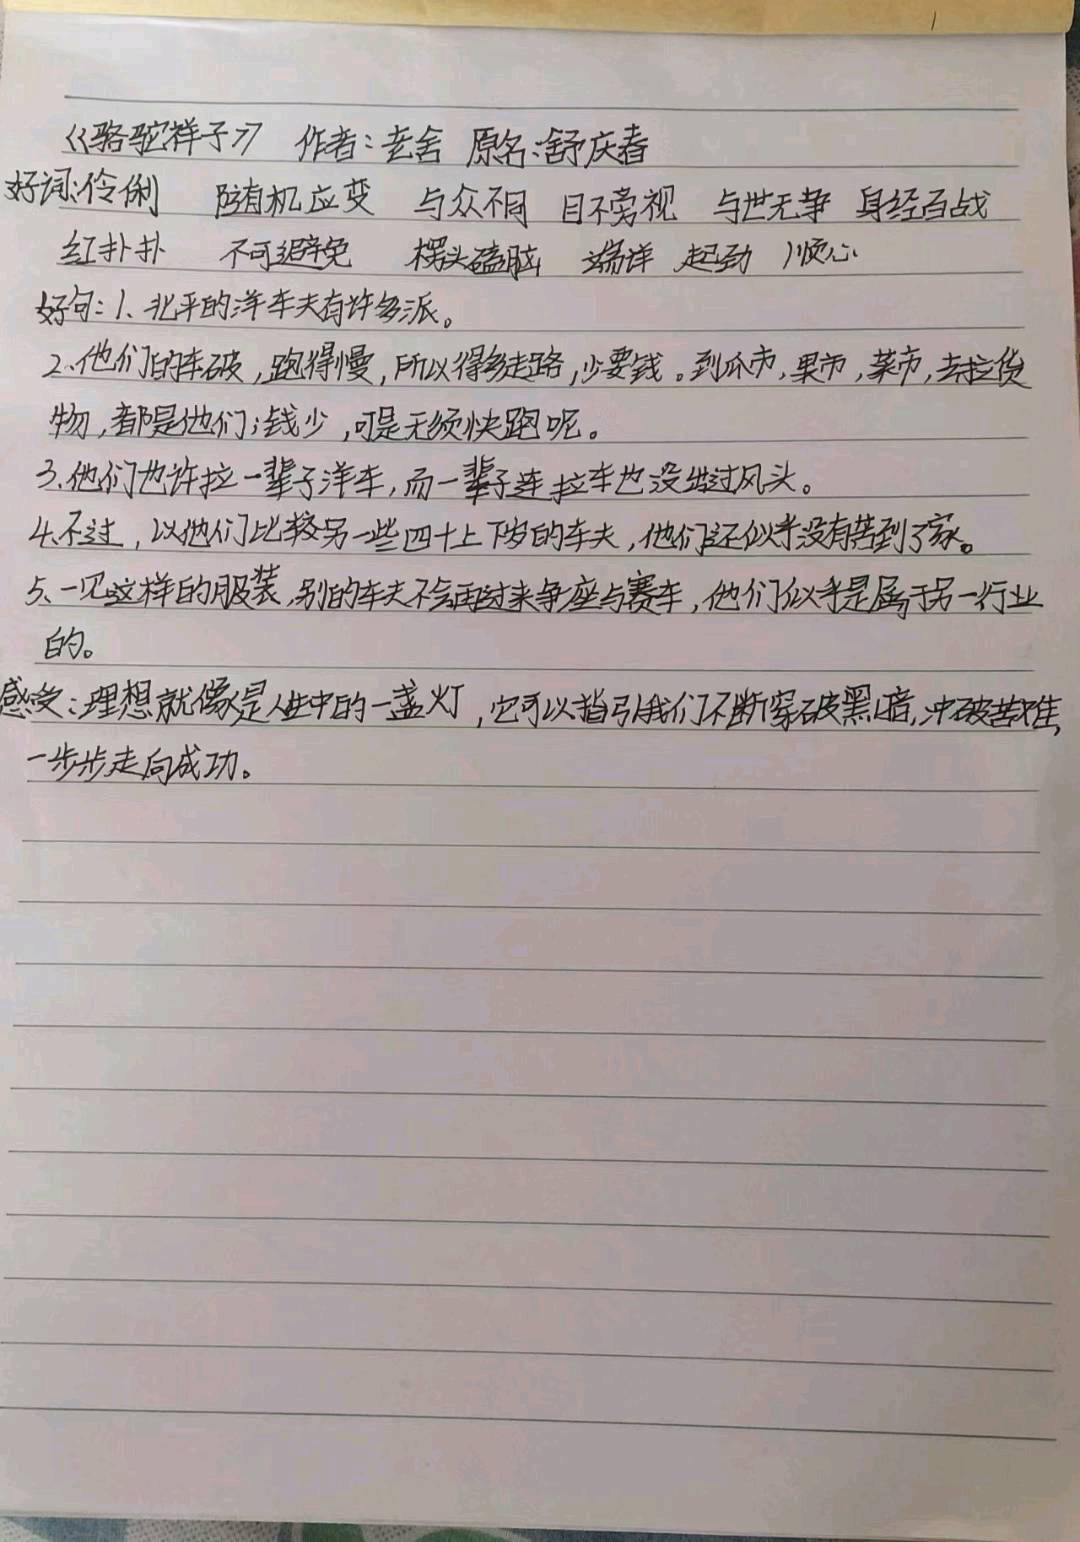 《骆驼祥子》 作者：老舍 原名：舒庆春
好词：伶俐 随机应变 与众不同 目不旁视 与世无争 身经百战
红扑扑 不可避免 楞头磕脑 端详 起劲 顺心
好句：1、北平的洋车夫有许多派。
2、他们的车破，跑得慢，所以得多走路，少要钱。到瓜市，果市，菜市，去拉货
物，都是他们；钱少，可是无须快跑呢。
3、他们也许拉一辈子洋车，而一辈子连拉车也没出过风头。
4、不过，以他们比较另一些四十上下岁的车夫，他们还似乎没有苦到了家。
5、一见这样的服装，别的车夫不会再过来争座与赛车，他们似乎是属于另一行业
的。
感受：理想就像是人生中的一盏灯，它可以指引我们不断穿破黑暗，冲破苦难，
一步步走向成功。